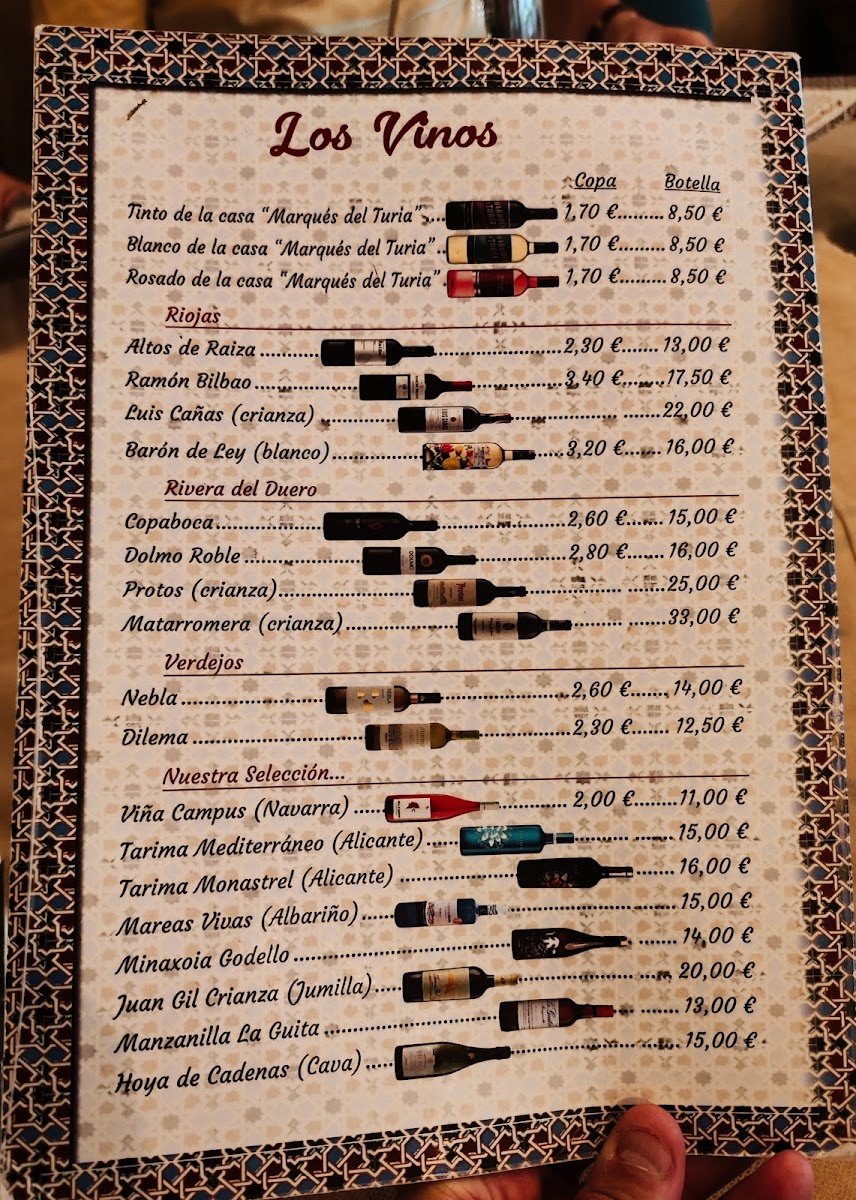 Los Vinos
Copa Botella
Tinto de la casa “Marqués del Turia”.... 1,70 €......... 8,50 €
Blanco de la casa “Marqués del Turia”.. 1,70 €......... 8,50 €
Rosado de la casa “Marqués del Turia” . 1,70 €......... 8,50 €
Riojas
Altos de Raiza ..... 2,30 €....... 13,00 €
Ramón Bilbao ..... 3,40 €........17,50 €
Luis Cañas (crianza) ..... 22,00 €
Barón de Ley (blanco)..... 3,20 €....... 16,00 €
Rivera del Duero
Copaboca..... 2,60 €....... 15,00 €
Dolmo Roble ..... 2,80 €....... 16,00 €
Protos (crianza)..... 25,00 €
Matarromera (crianza)..... 33,00 €
Verdejos
Nebla ..... 2,60 €....... 14,00 €
Dilema ..... 2,30 €....... 12,50 €
Nuestra Selección...
Viña Campus (Navarra) ..... 2,00 €........11,00 €
Tarima Mediterráneo (Alicante) ..... 15,00 €
Tarima Monastrel (Alicante) ..... 16,00 €
Mareas Vivas (Albariño) ..... 15,00 €
Minaxoia Godello ..... 14,00 €
Juan Gil Crianza (Jumilla)..... 20,00 €
Manzanilla La Guita ..... 13,00 €
Hoya de Cadenas (Cava) ..... 15,00 €